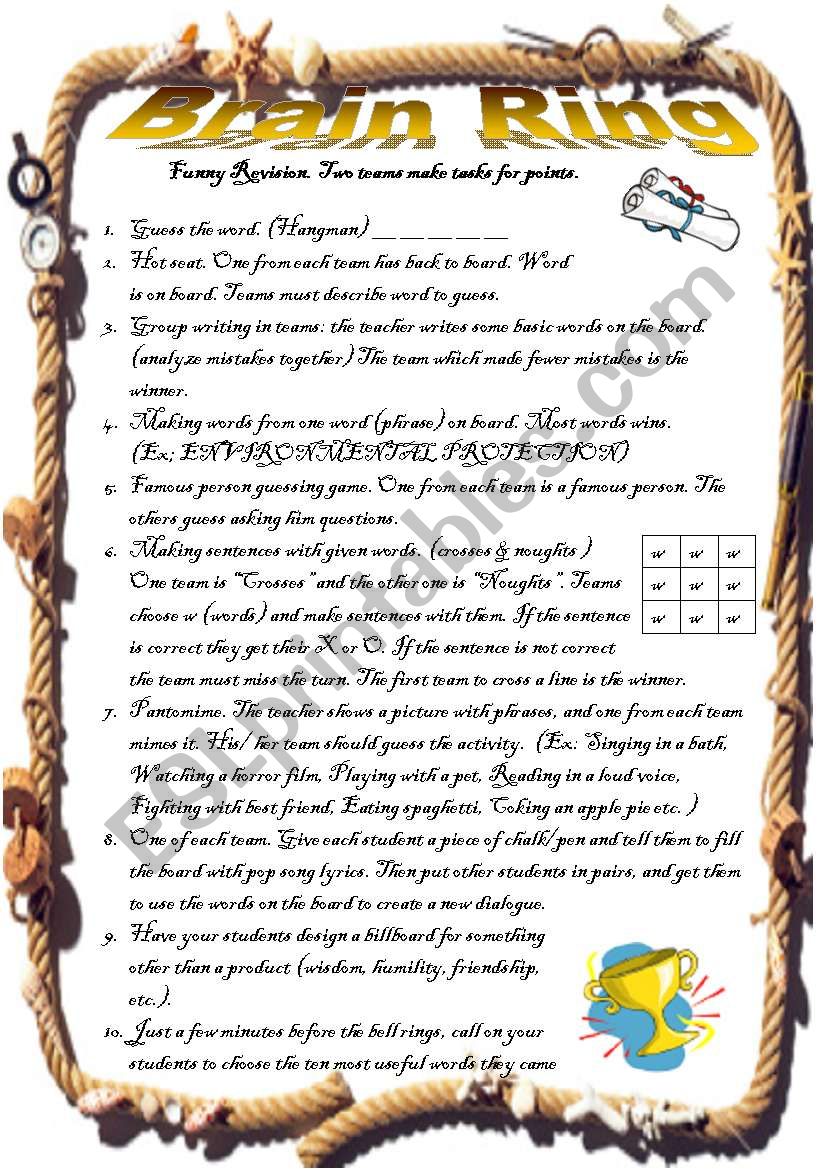 Brain Ring
Funny Revision. Two teams make tasks for points.
1. Guess the word. (Hangman) __ __ __ __ __
2. Hot seat. One from each team has back to board. Word
is on board. Teams must describe word to guess.
3. Group writing in teams: the teacher writes some basic words on the board.
(analyze mistakes together) The team which made fewer mistakes is the
winner.
4. Making words from one word (phrase) on board. Most words wins.
(Ex; ENVIRONMENTAL PROTECTION)
5. Famous person guessing game. One from each team is a famous person. The
others guess asking him questions.
6. Making sentences with given words. (crosses & noughts )
One team is "Crosses" and the other one is "Noughts". Teams
choose w (words) and make sentences with them. If the sentence
is correct they get their X or O. If the sentence is not correct
the team must miss the turn. The first team to cross a line is the winner.
w w w
w w w
w w w
7. Pantomime. The teacher shows a picture with phrases, and one from each team
mimes it. His/ her team should guess the activity. (Ex: Singing in a bath,
Watching a horror film, Playing with a pet, Reading in a loud voice,
Fighting with best friend, Eating spaghetti, Coking an apple pie etc. )
8. One of each team. Give each student a piece of chalk/pen and tell them to fill
the board with pop song lyrics. Then put other students in pairs, and get them
to use the words on the board to create a new dialogue.
9. Have your students design a billboard for something
other than a product (wisdom, humility, friendship,
etc.).
10. Just a few minutes before the bell rings, call on your
students to choose the ten most useful words they came
ESLprintables.com